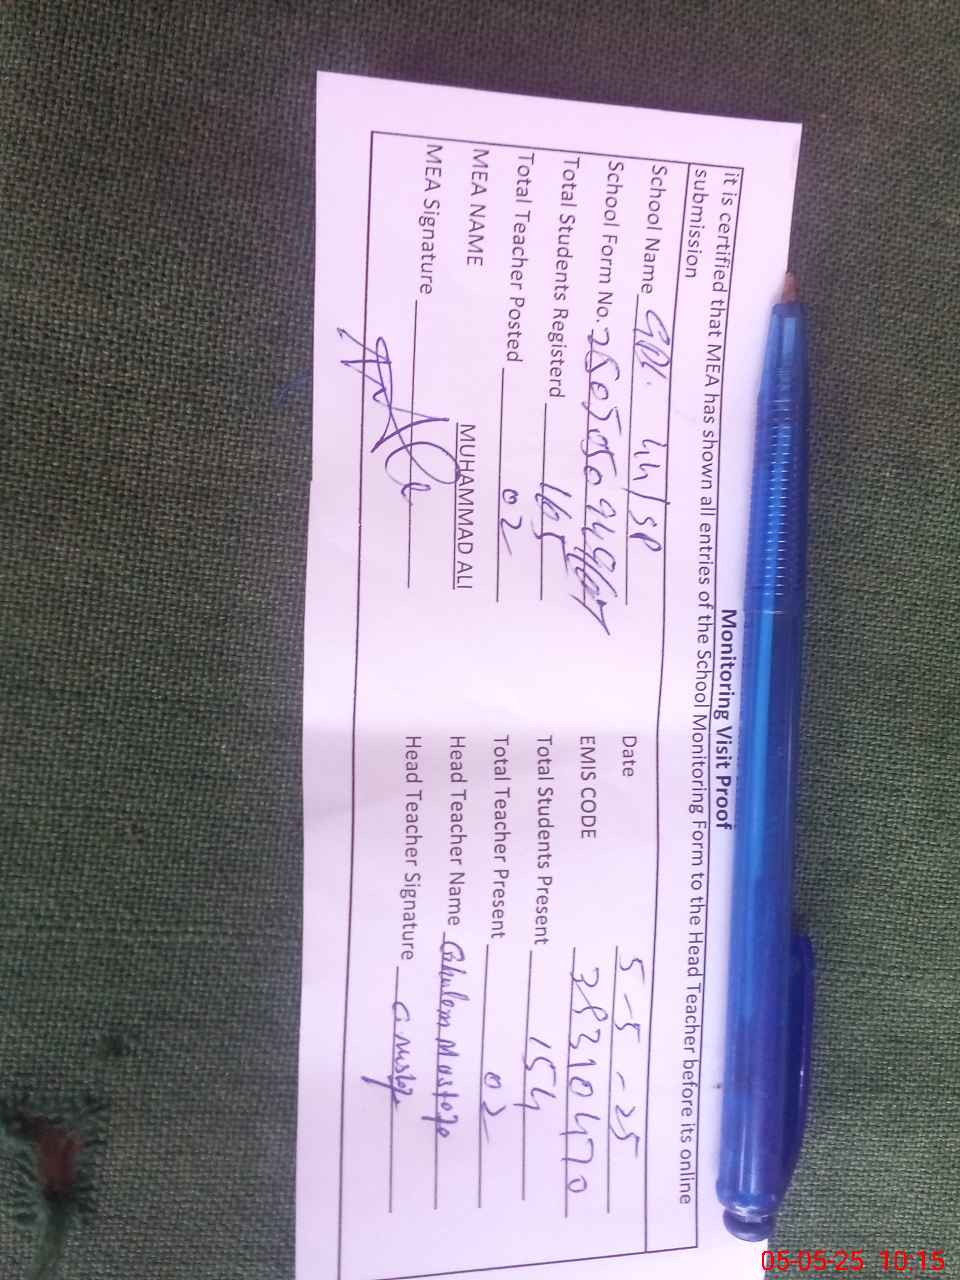 Monitoring Visit Proof
it is certified that MEA has shown all entries of the School Monitoring Form to the Head Teacher before its online
submission
School Name 44/SP Date 5-5-25
School Form No. EMIS CODE 38310470
Total Students Registerd 165 Total Students Present 154
Total Teacher Posted 02 Total Teacher Present 02
MEA NAME MUHAMMAD ALI Head Teacher Name Ghulam Mustafa
MEA Signature Head Teacher Signature
05-05-25 10:15